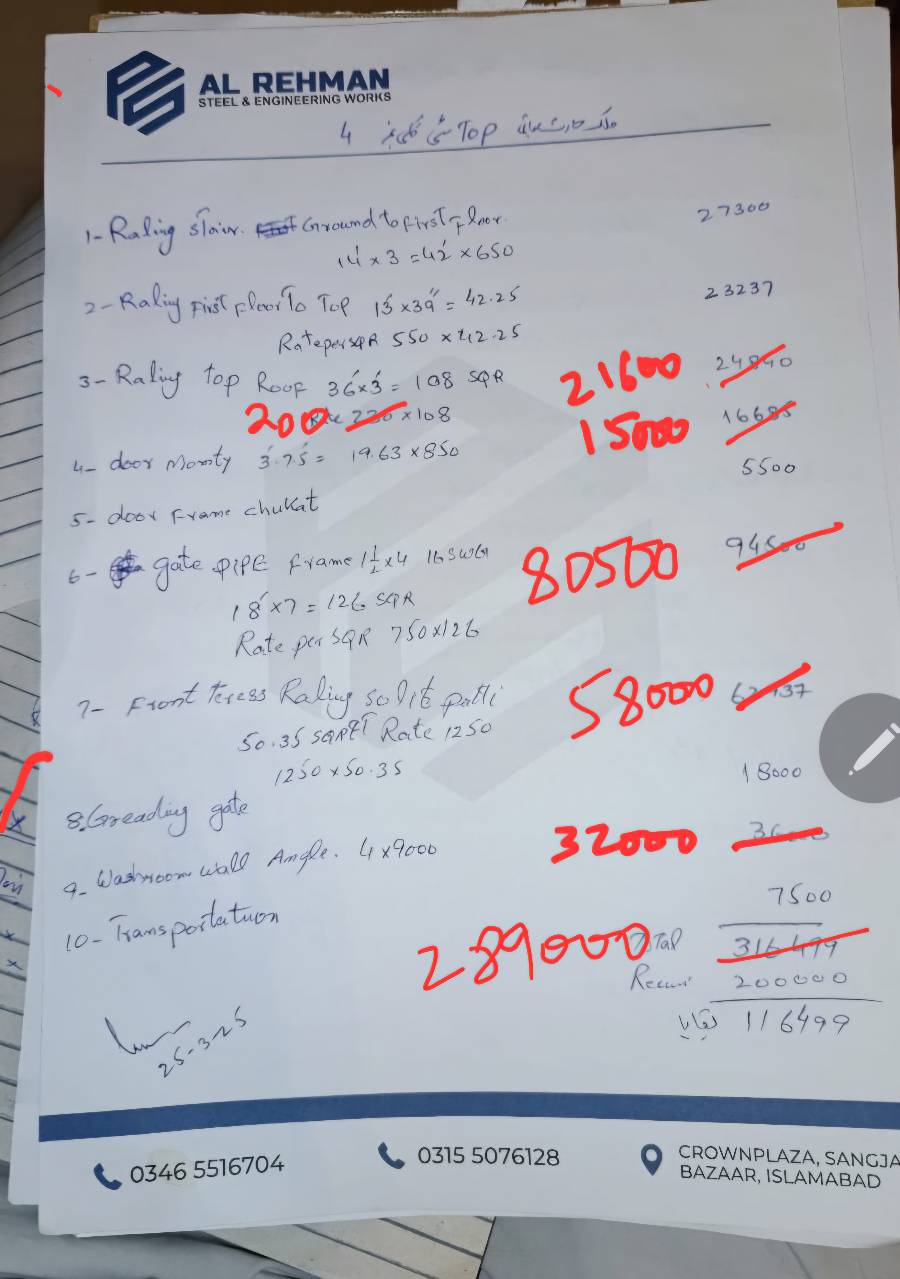 AL REHMAN
STEEL & ENGINEERING WORKS
Top 4
1- Raling Stair. Ground to first Floor. 27300
14' x 3 = 42' x 650
2- Raling First Floor To Top 13' x 39" = 42.25 23237
Rate per SQR 550 x 42.25
3- Raling top Roof 36' x 3' = 108 SQR 21600 24840
200 Rate 230 x 108 15000 16685
4- door Momty 3'.75' = 19.63 x 850
5- door Frame chukat 5500
6- gate PIPE Frame 1 1/2 x 4 16 SWG 80500 94500
18' x 7 = 126 SQR
Rate per SQR 750 x 126
7- Front teress Raling solit patti 58000 62937
50.35 SQRFT Rate 1250
1250 x 50.35
8. Greading gate 18000
9- Washroom wall Angle. 4 x 9000 32000 36000
10- Transportatuon 7500
289000 Total 316499
200000
بقایا 116499
25-3-25
0346 5516704
0315 5076128
CROWNPLAZA, SANGJA
BAZAAR, ISLAMABAD